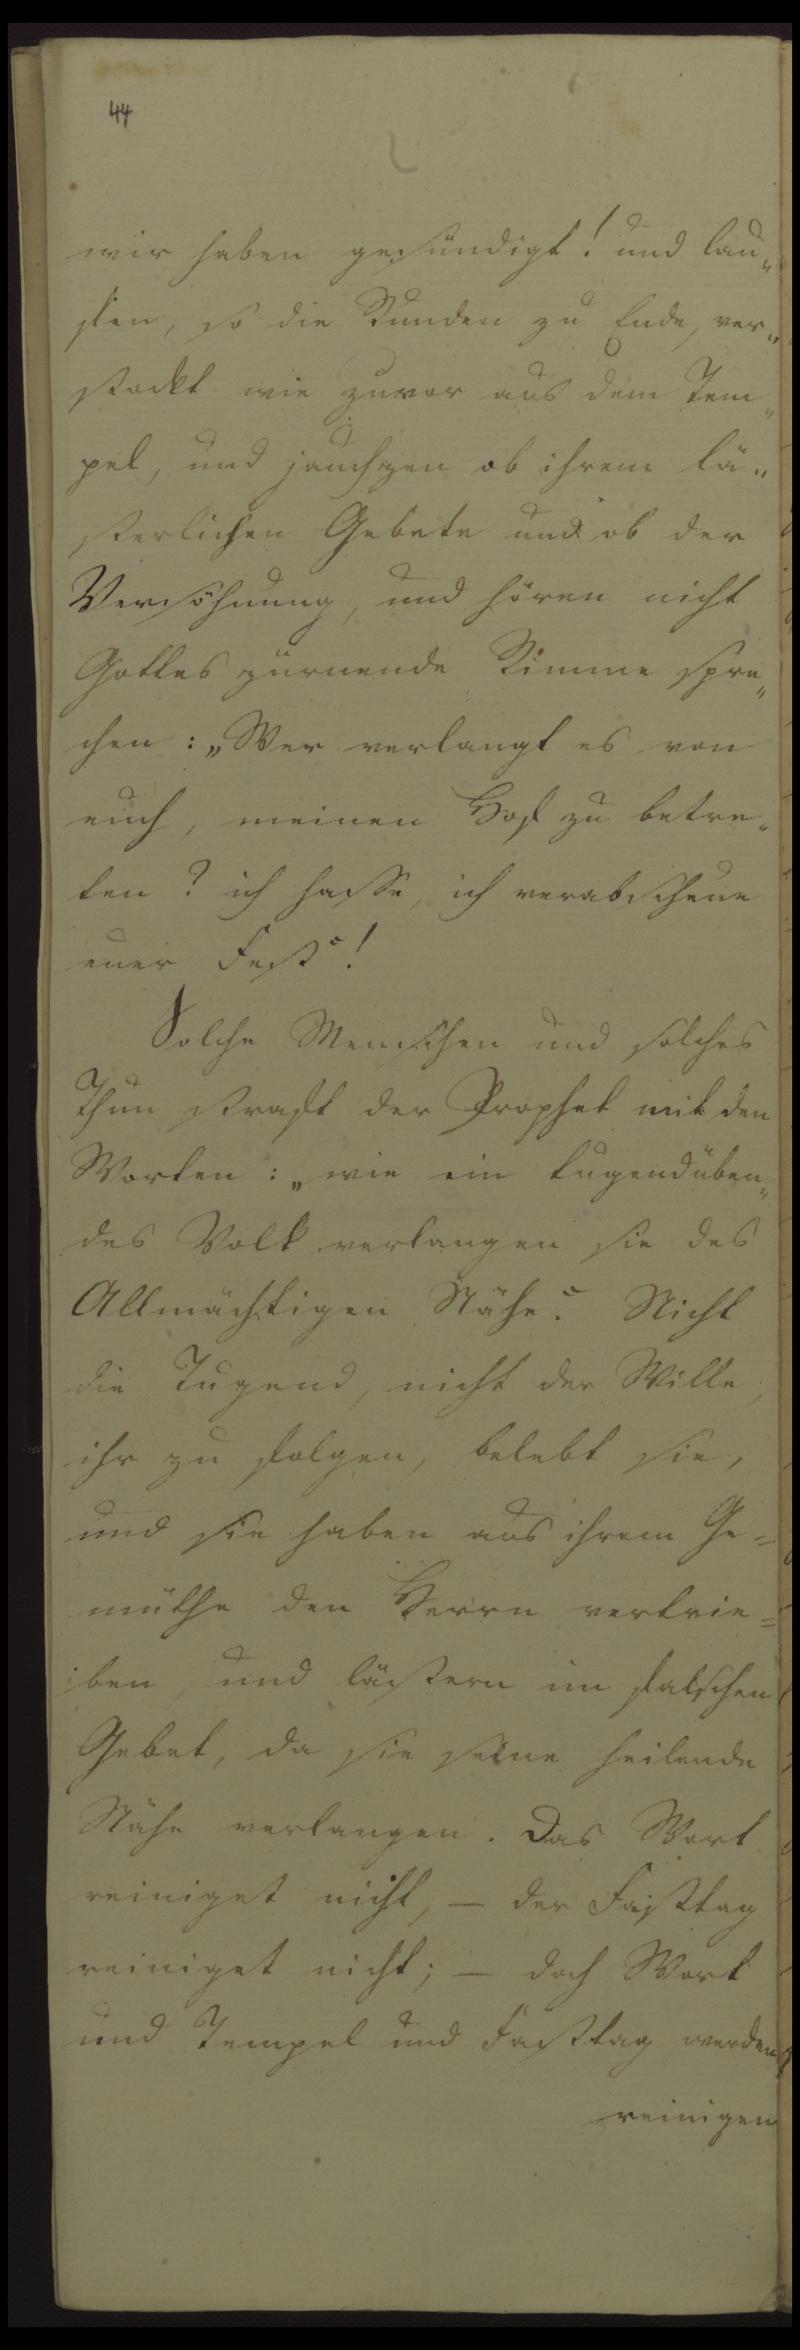 44
wir haben gesündigt! und lau„
fen, so die Stunden zu Ende, ver„
stockt wie zuvor aus dem Tem„
pel, und jauchzen ob ihrem lä„
sterlichen Gebete und ob der
Versöhnung, und hören nicht
Gottes zürnende Stimme spre„
chen: „Wer verlangt es von
euch, meinen Hof zu betre„
ten? ich hasse, ich verabscheue
euer Fest“!
Solche Menschen und solches
Thun straft der Prophet mit den
Worten: „wie ein tugendüben„
des Volk verlangen sie des
Allmächtigen Nähe“. Nicht
die Tugend, nicht der Wille,
ihr zu folgen, belebt sie,
und sie haben aus ihrem Ge=
müthe den Herrn vertrie=
ben, und lästern im falschen
Gebet, da sie seine heilende
Nähe verlangen. Das Wort
reiniget nicht, — der Fasttag
reiniget nicht; — doch Wort
und Tempel und Fasttag werden
reinigen